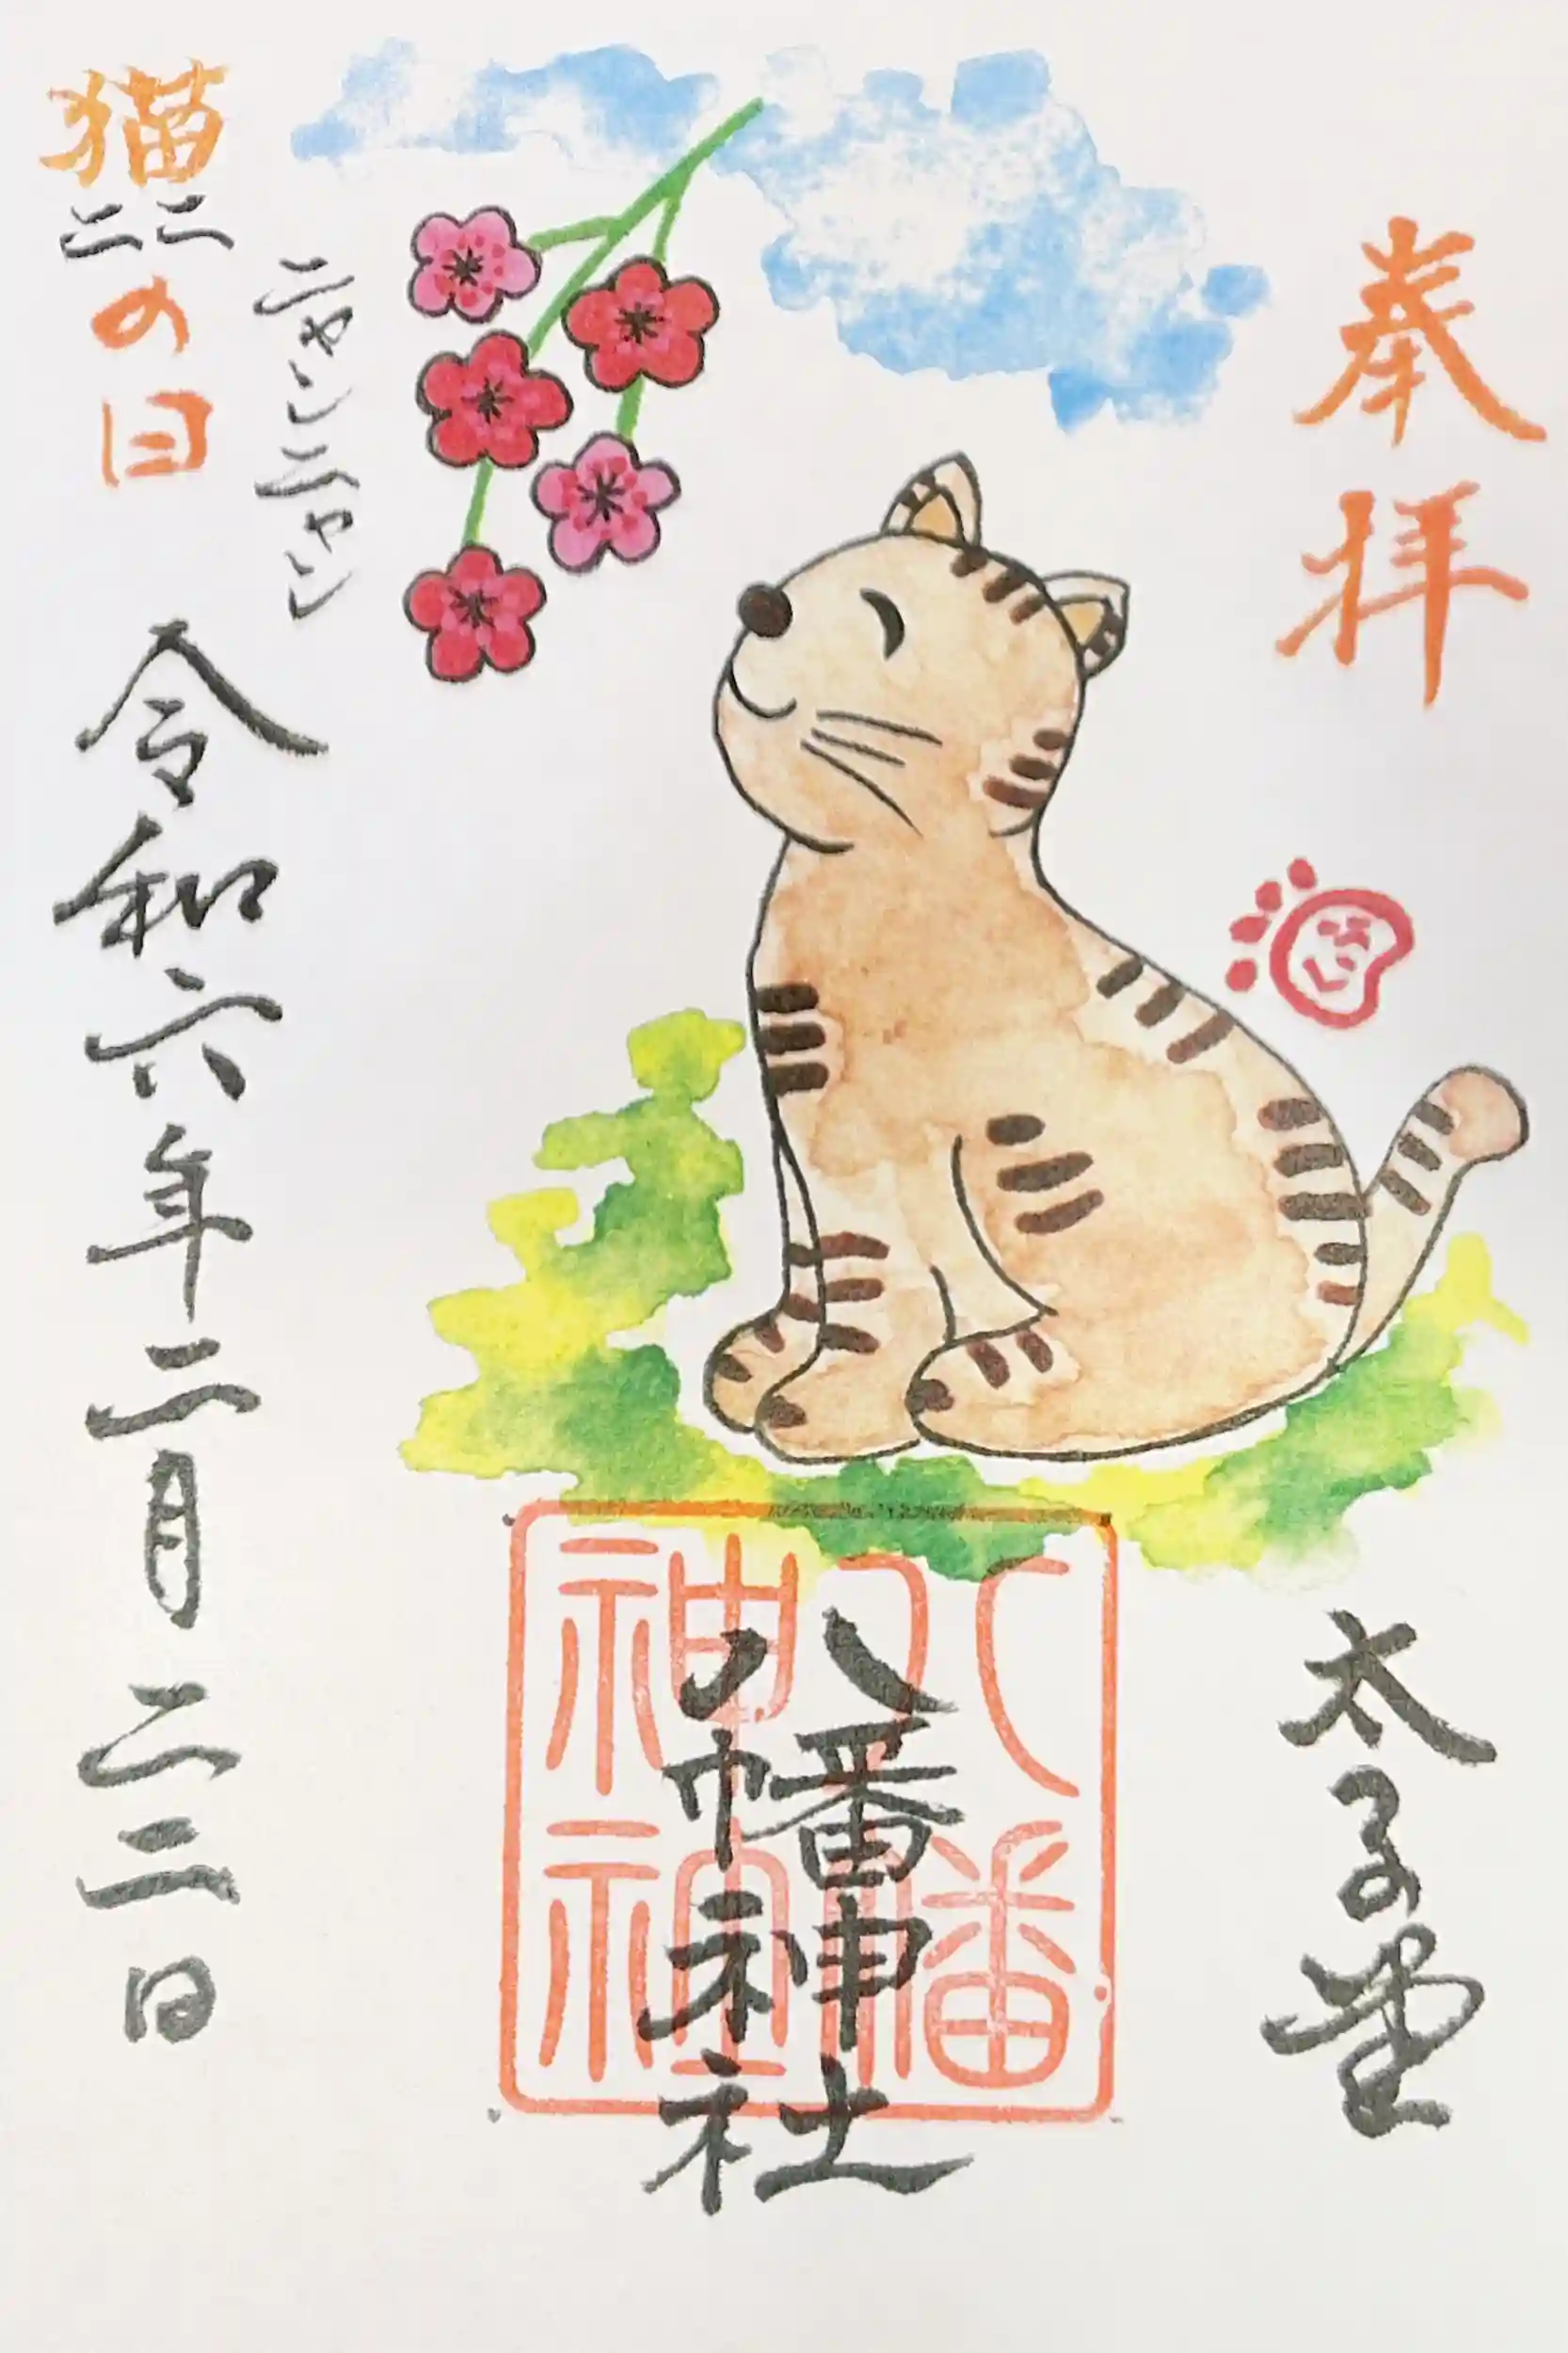 奉拝
太子堂
八幡
神社
八幡神社
ニャンニャン
猫ニニの日
令和六年二月二二日